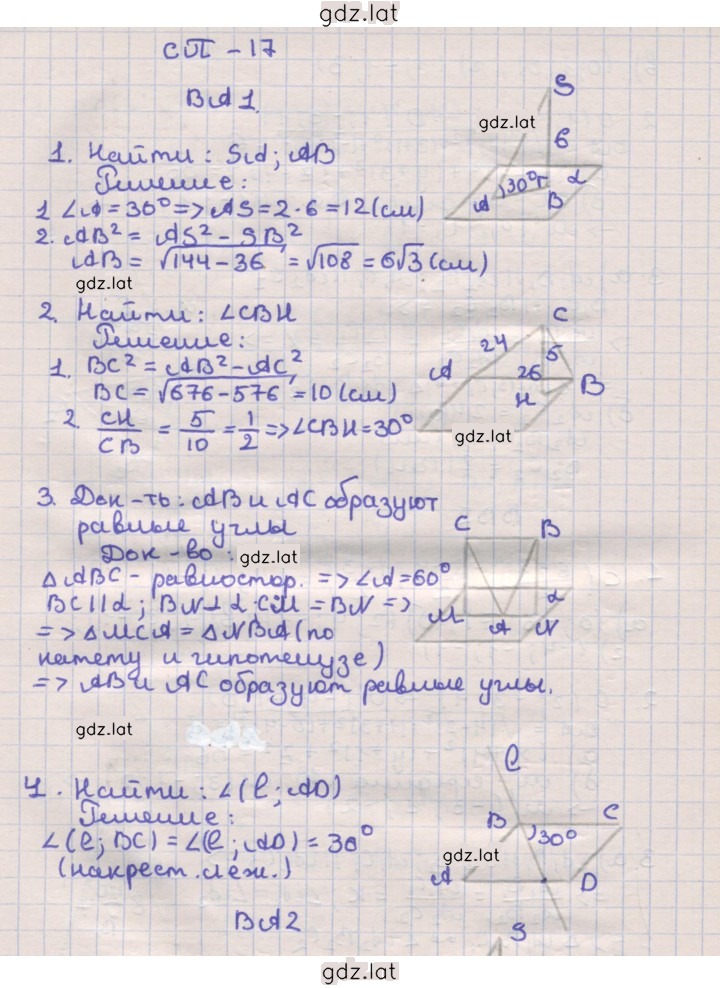 gdz.lat
СП - 17
ВА 1.
1. Найти: Sα; AB
Решение:
1 ∠A = 30° => AS = 2 · 6 = 12 (см)
2. AB² = AS² - SB²
AB = √144 - 36 = √108 = 6√3 (см)
S
gdz.lat
6
30°
α
A
B
gdz.lat
2. Найти: ∠CBH
Решение:
1. BC² = AB² - AC²
BC = √676 - 576 = 10 (см)
2. CH/CB = 5/10 = 1/2 => ∠CBH = 30°
C
24
5
A
26
B
H
gdz.lat
3. Док-ть: AB и AC образуют
равные углы
Док-во:
gdz.lat
△ABC - равностор. => ∠A = 60°
BC || α; BN ⊥ α; CM = BN =>
=> △MCA = △NBA (по
катету и гипотенузе)
=> AB и AC образуют равные углы.
C
B
M
A
N
α
gdz.lat
4. Найти: ∠(ℓ; AD)
Решение:
∠(ℓ; BC) = ∠(ℓ; AD) = 30°
(накрест. леж.)
ℓ
B
C
30°
gdz.lat
A
D
ВА 2
S
gdz.lat